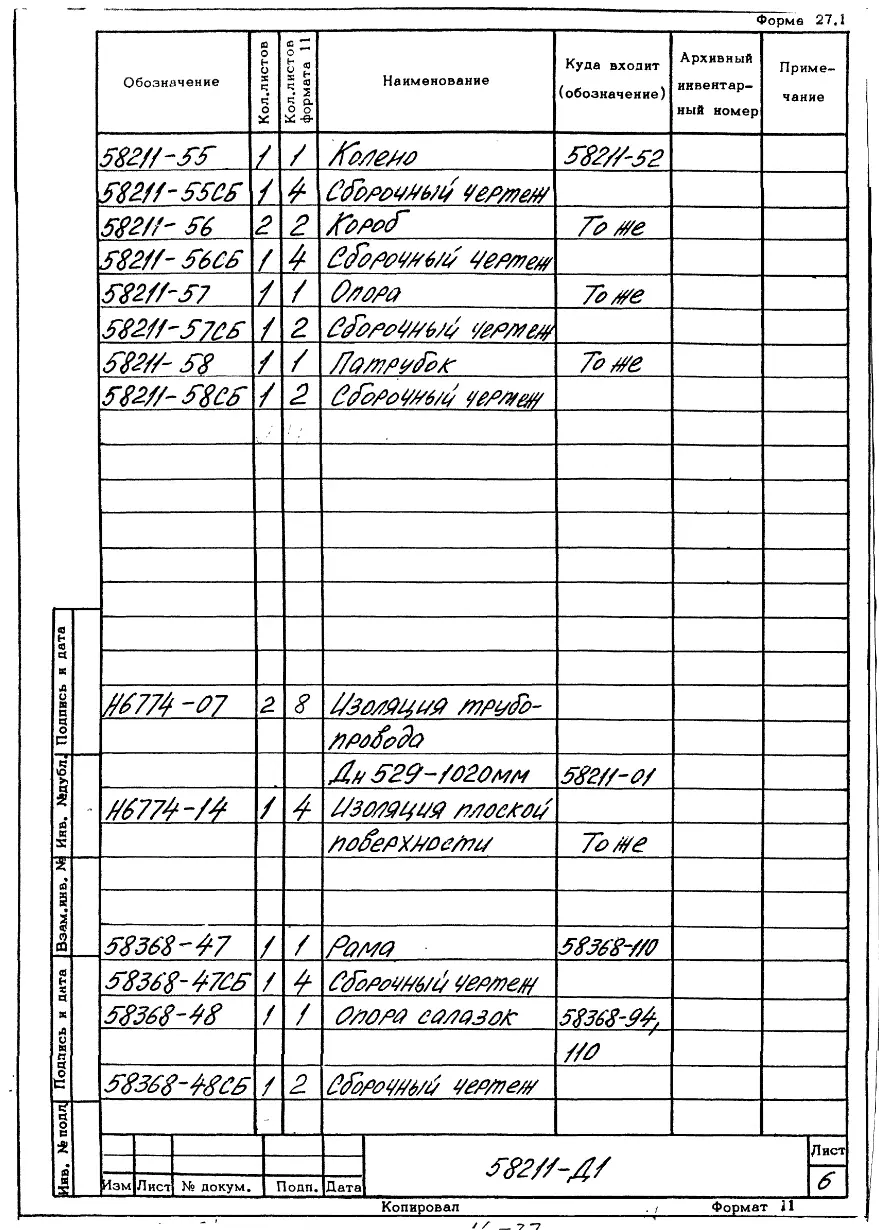 Форма 27.1
Обозначение Кол.листов Кол.листов формата 11 Наименование Куда входит (обозначение) Архивный инвентар- ный номер Приме- чание
58211-55 1 1 Колено 58211-52
58211-55СБ 1 4 Сборочный чертеж
58211-56 2 2 Короб То же
58211-56СБ 1 4 Сборочный чертеж
58211-57 1 1 Опора То же
58211-57СБ 1 2 Сборочный чертеж
58211-58 1 1 Патрубок То же
58211-58СБ 1 2 Сборочный чертеж
Н6774-07 2 8 Изоляция трубо-
провода
Дн 529-1020мм 58211-01
Н6774-14 1 4 Изоляция плоской
поверхности То же
58368-47 1 1 Рама 58368-110
58368-47СБ 1 4 Сборочный чертеж
58368-48 1 1 Опора салазок 58368-94,
110
58368-48СБ 1 2 Сборочный чертеж
Подпись и дата
Инв. №дубл.
Взам.инв. №
Подпись и дата
Инв. № подл
58211-Д1
Лист
6
Изм Лист № докум. Подп. Дата
Копировал Формат 11